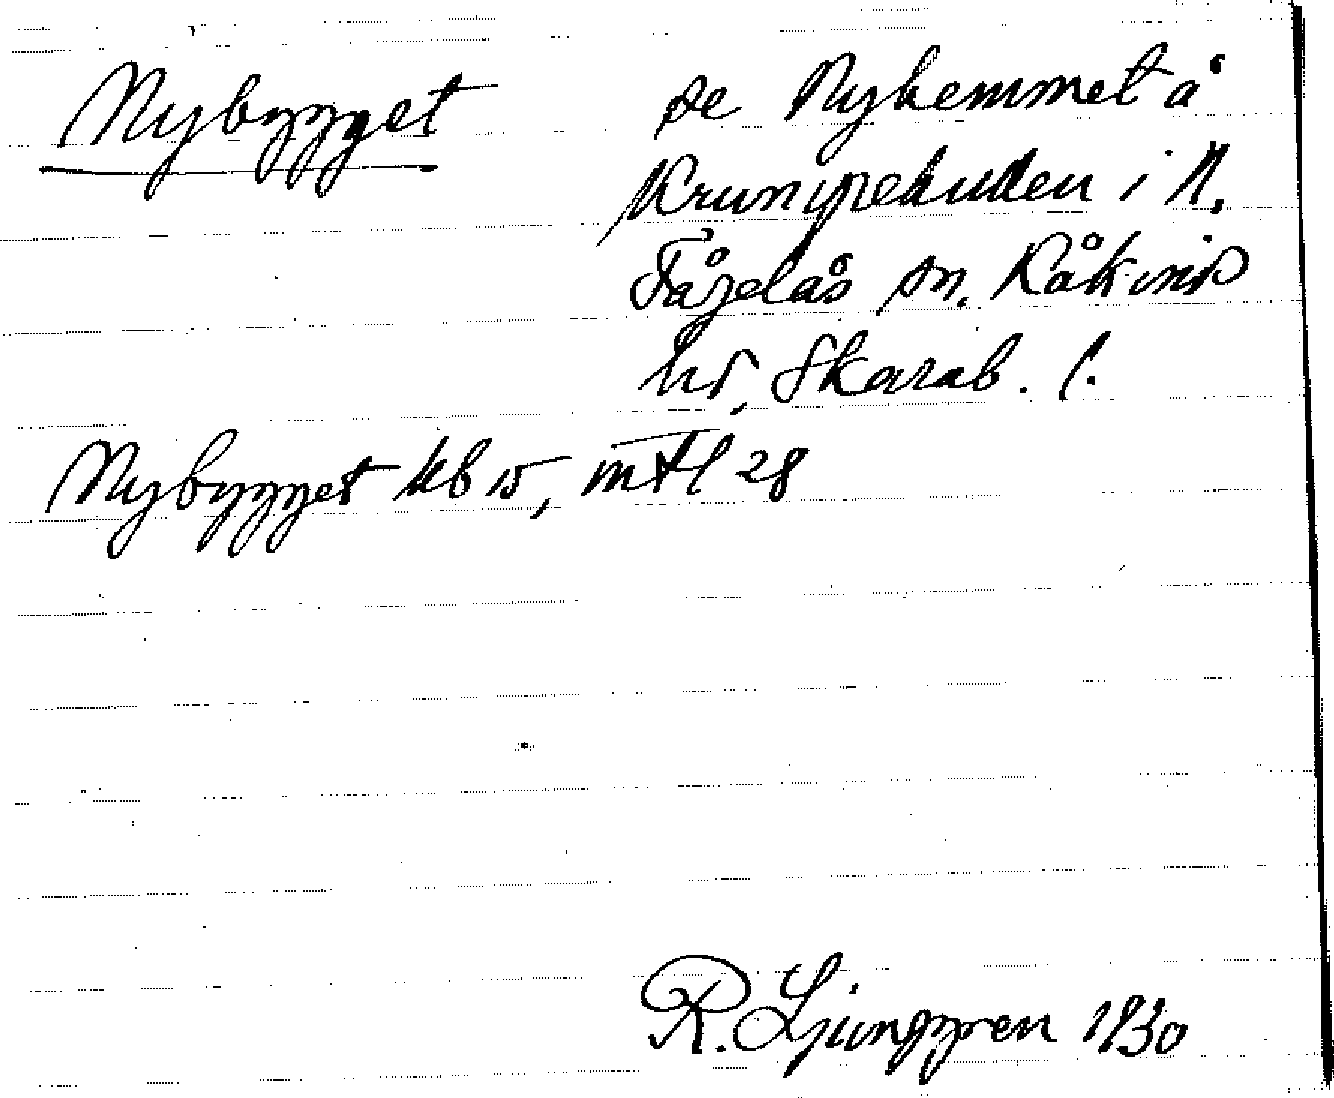 Nybygget se Nyhemmet å
i N.
Fågelås sn. Kåkind
hd, Skarab. l.
Nybygget kb 15, mtl 28
R. Ljunggren 1930